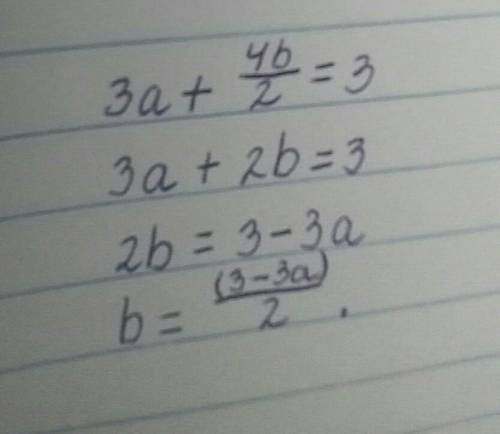 3a + 4b/2 = 3
3a + 2b = 3
2b = 3 - 3a
b = (3-3a)/2 .